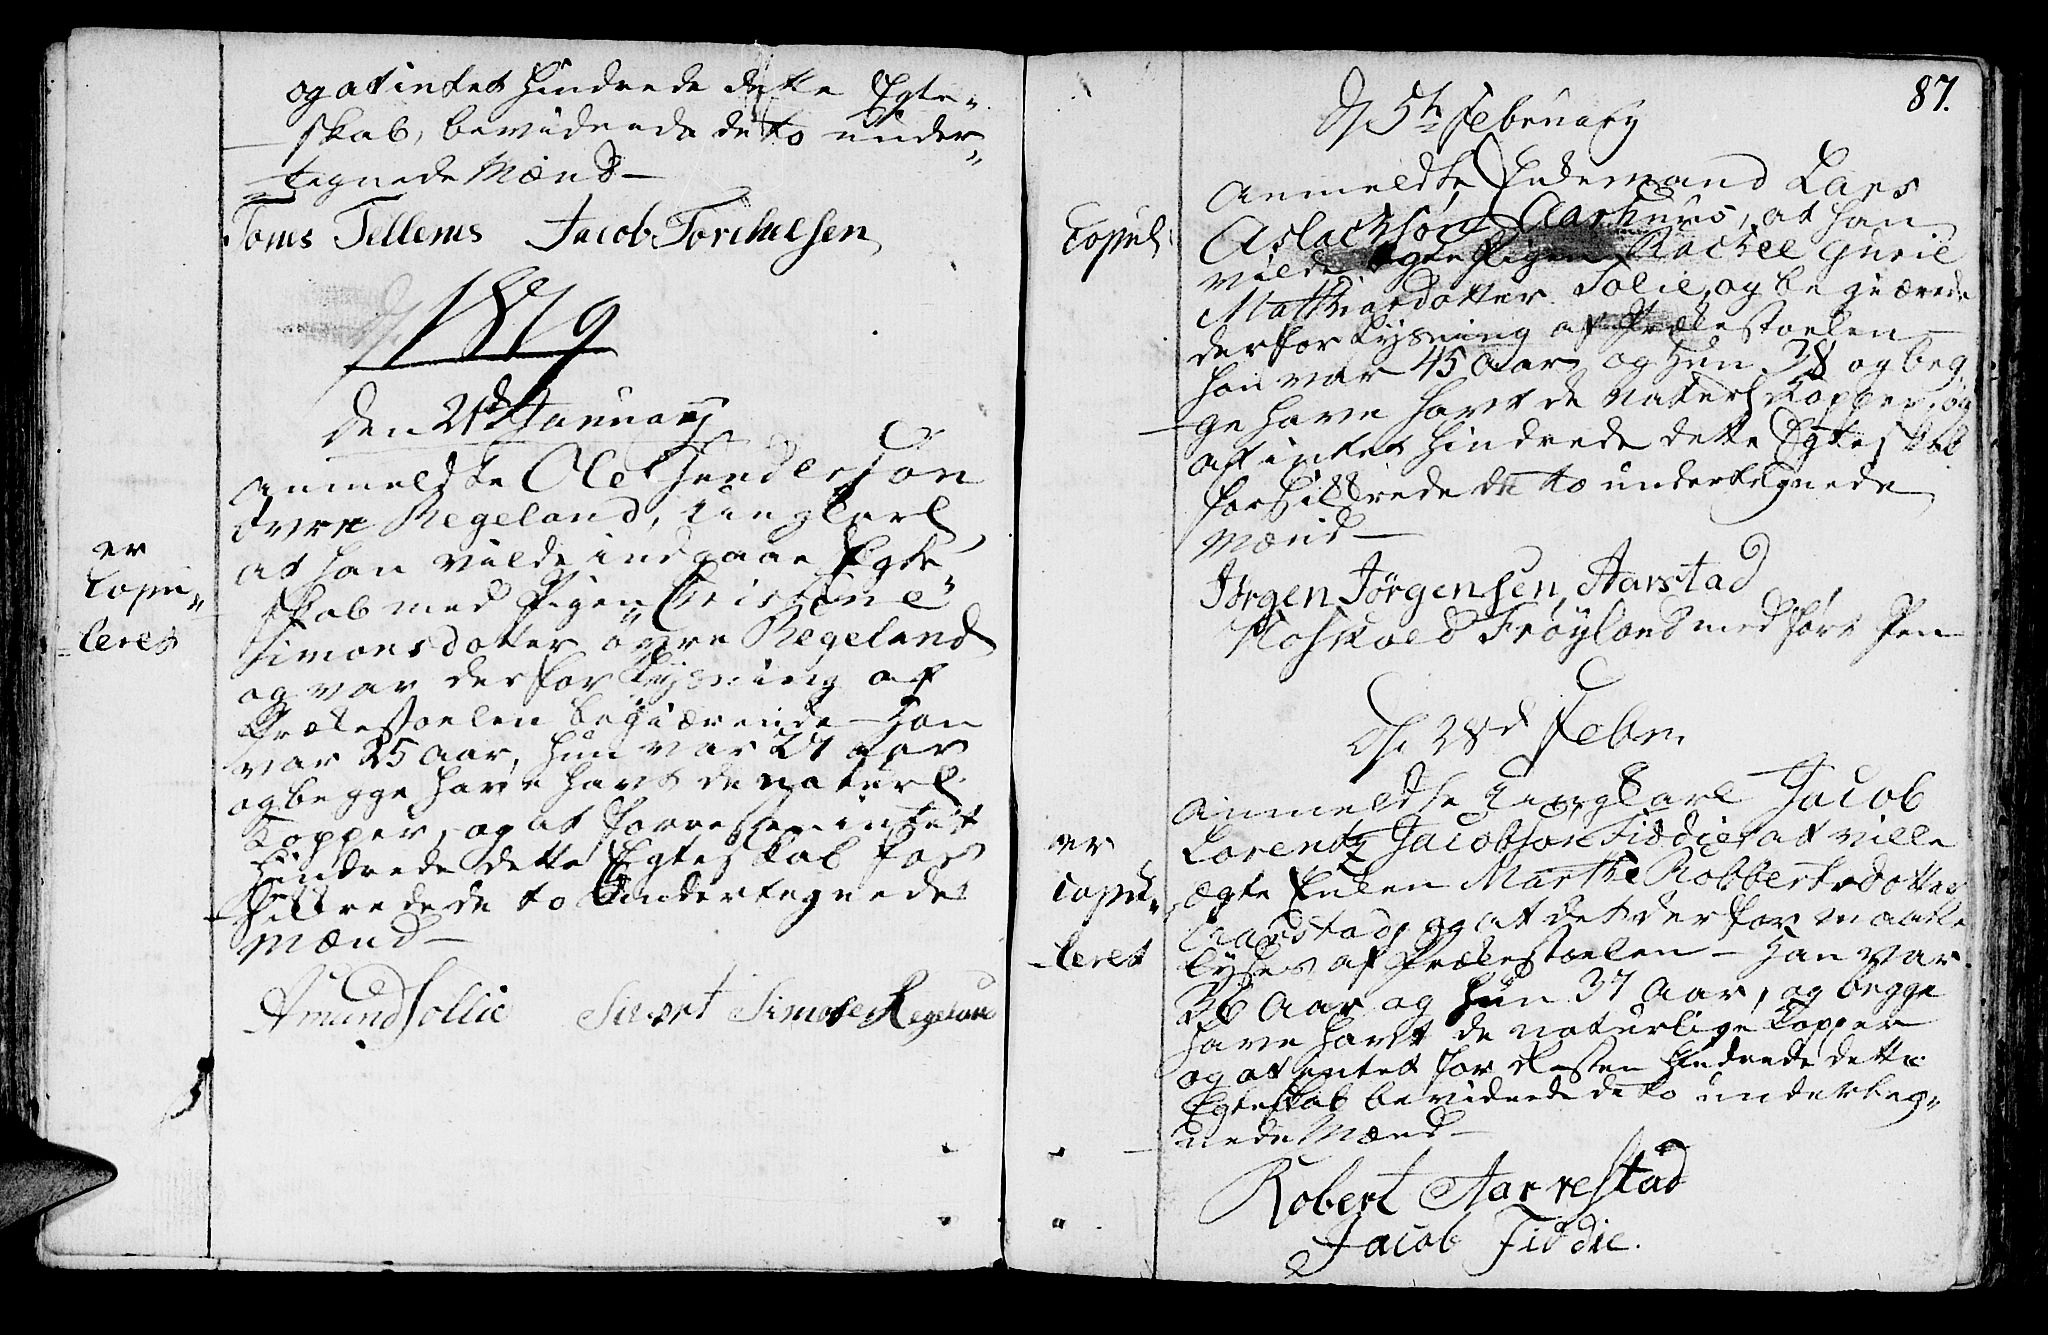 og at intet hindrede dette Egte„
skab, bevidnede de to under„
tegnede Mænd —
Tonis Tellenes Jacob Torchelsen
1819
den 21d January
anmeldte Ole Henderson
övre Regeland, ungkarl,
at han vilde indgaae Egte„
skab med Pigen Christine
Simonsdotter övre Regeland
og var derfor Lysning af
Prækestoelen begiærende — Han
var 25 Aar, hun var 27 Aar
og begge have havt de naturl.
Kopper, og at forresten intet
hindrede dette Egteskab for„
sikkrede de to Undertegnede
Mænd —
Amund Sollie Sivert Simonsen Regeland
er
Copu„
leret
87.
D 5te February
Anmeldte Enkemand Lars
Aslachson Aarhuus, at han
vilde egte Pigen Rachel Guril
Matthiasdotter Solie, og begiærede
derfor Lysning af Prækestoelen —
han var 45 Aar og Hun 38 og beg„
ge have havt de naturl. Kopper, og
at intet hindrede dette Egteskab
forsikkrede de to undertegnede
Mænd —
Jörgen Jörgensen, Aarstad
Hoskold Fröyland med förr Pen
Copul:
D. 28d Febr.
Anmeldte ungkarl Jacob
Lorentz Jacobson Fiddie at ville
ægte Enken Marthe Robbertsdotter
Aarstad, og at det derfor maatte
lyses af Prækestoelen — Han var
36 Aar og hun 37 Aar, og begge
have havt de naturlige Kopper
og at intet for Resten hindrede dette
Egteskab bevidnede de to underteg„
nede Mænd —
Robert Aarrestad
Jacob Fiddie.
er
Copu„
leret